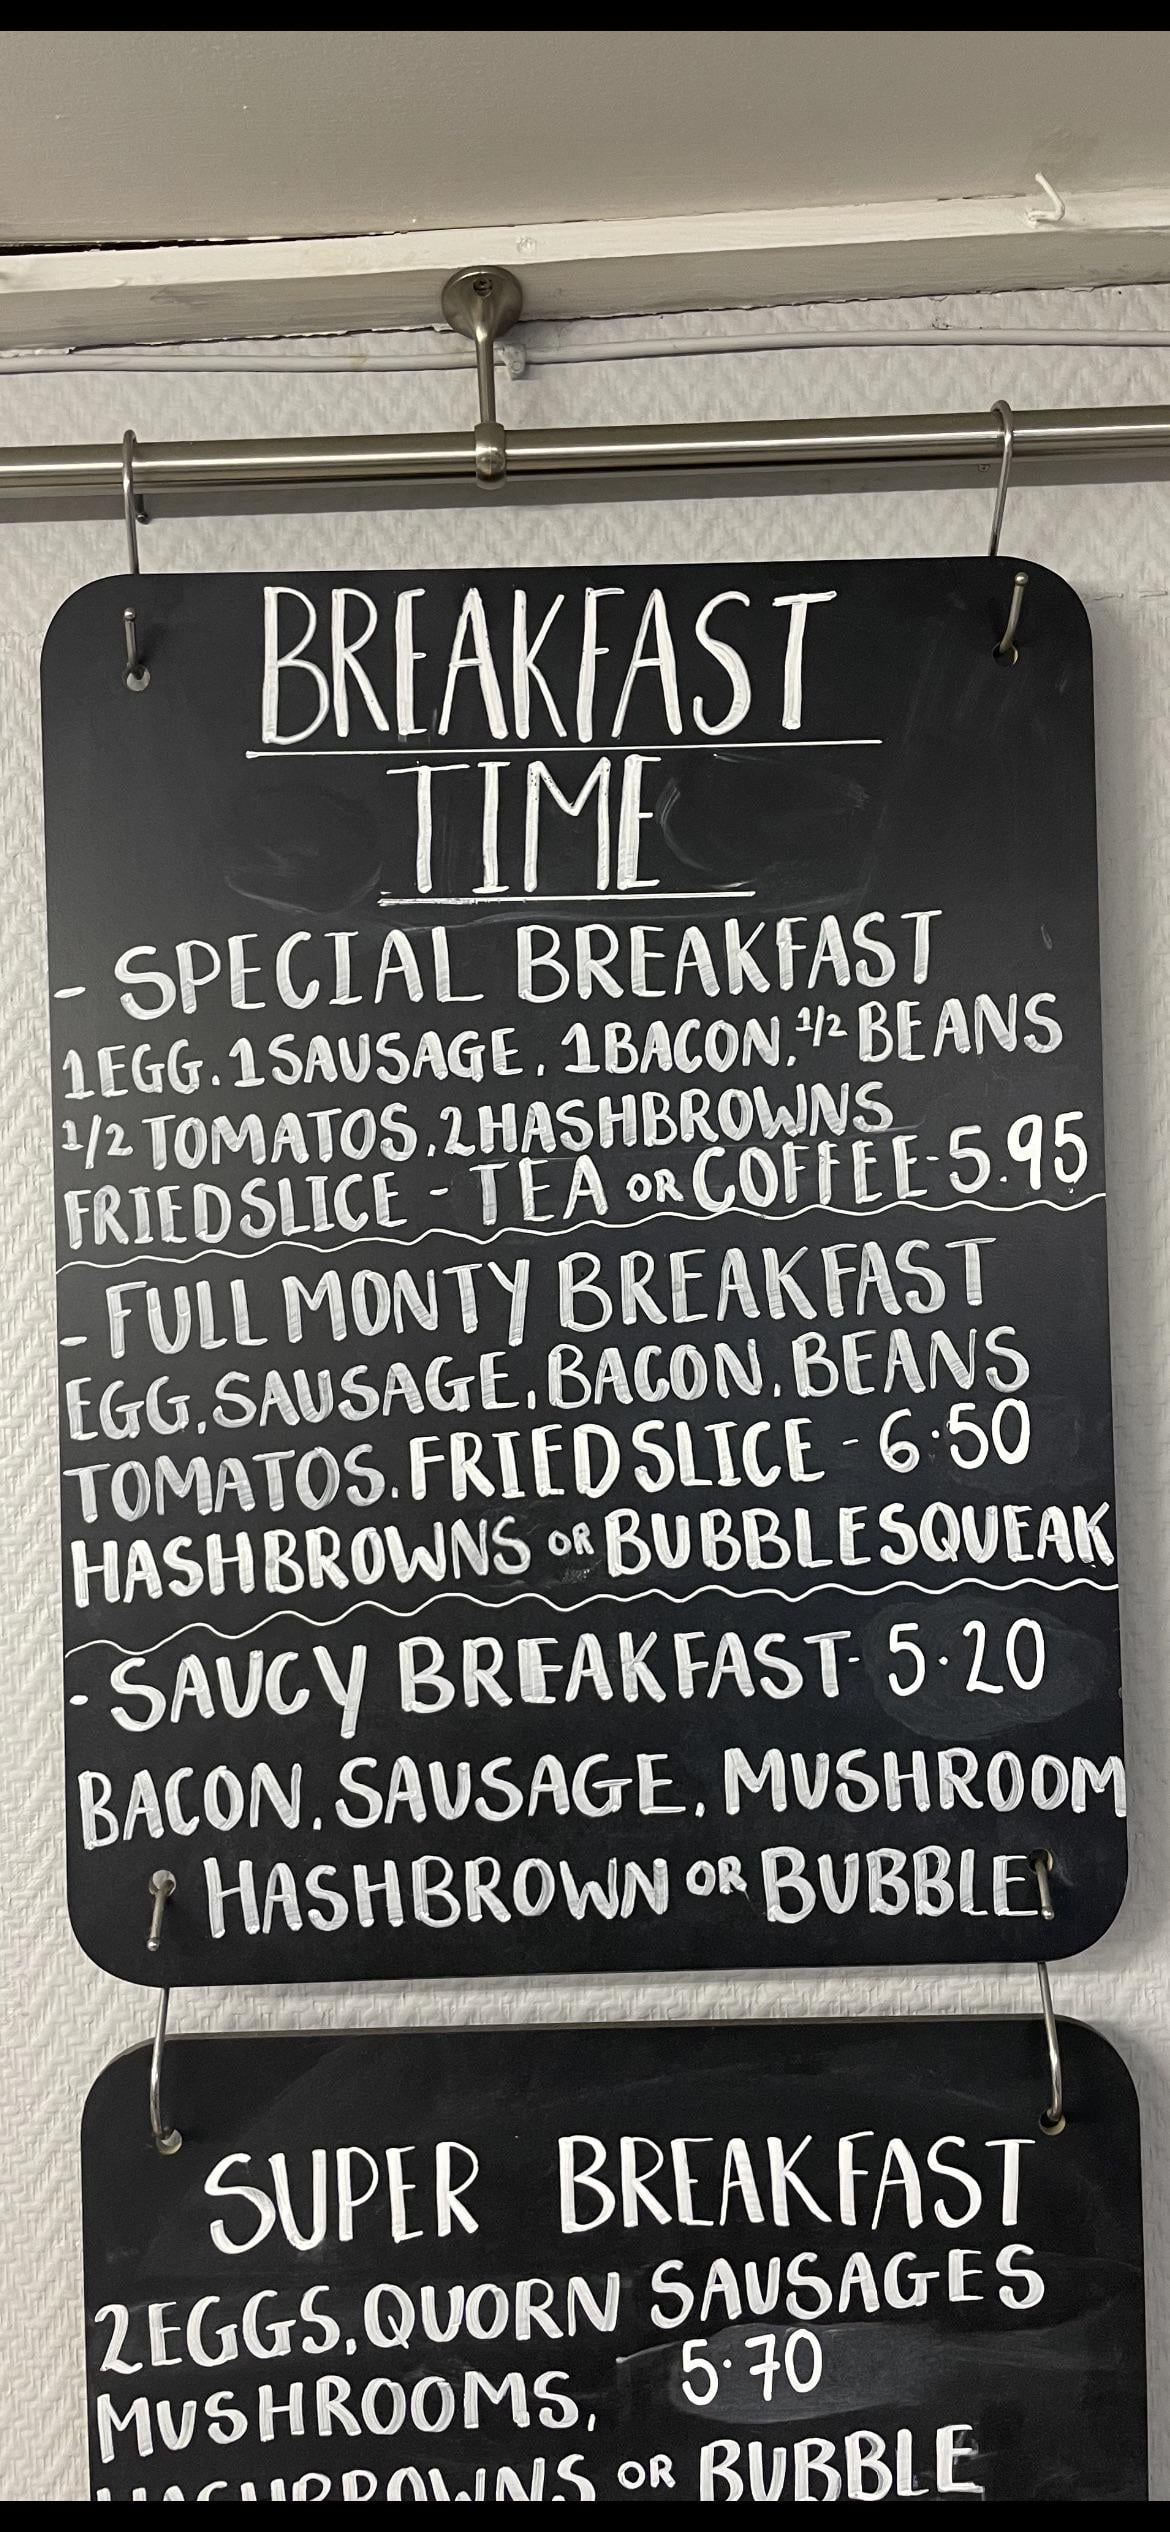 BREAKFAST
TIME
- SPECIAL BREAKFAST
1 EGG. 1 SAUSAGE. 1 BACON. 1/2 BEANS
1/2 TOMATOS. 2 HASHBROWNS
FRIED SLICE - TEA OR COFFEE - 5.95
- FULL MONTY BREAKFAST
EGG. SAUSAGE. BACON. BEANS
TOMATOS. FRIED SLICE - 6.50
HASHBROWNS OR BUBBLESQUEAK
- SAUCY BREAKFAST - 5.20
BACON. SAUSAGE. MUSHROOM
HASHBROWN OR BUBBLE
SUPER BREAKFAST
2 EGGS, QUORN SAUSAGES
MUSHROOMS, 5.70
HASHBROWNS OR BUBBLE